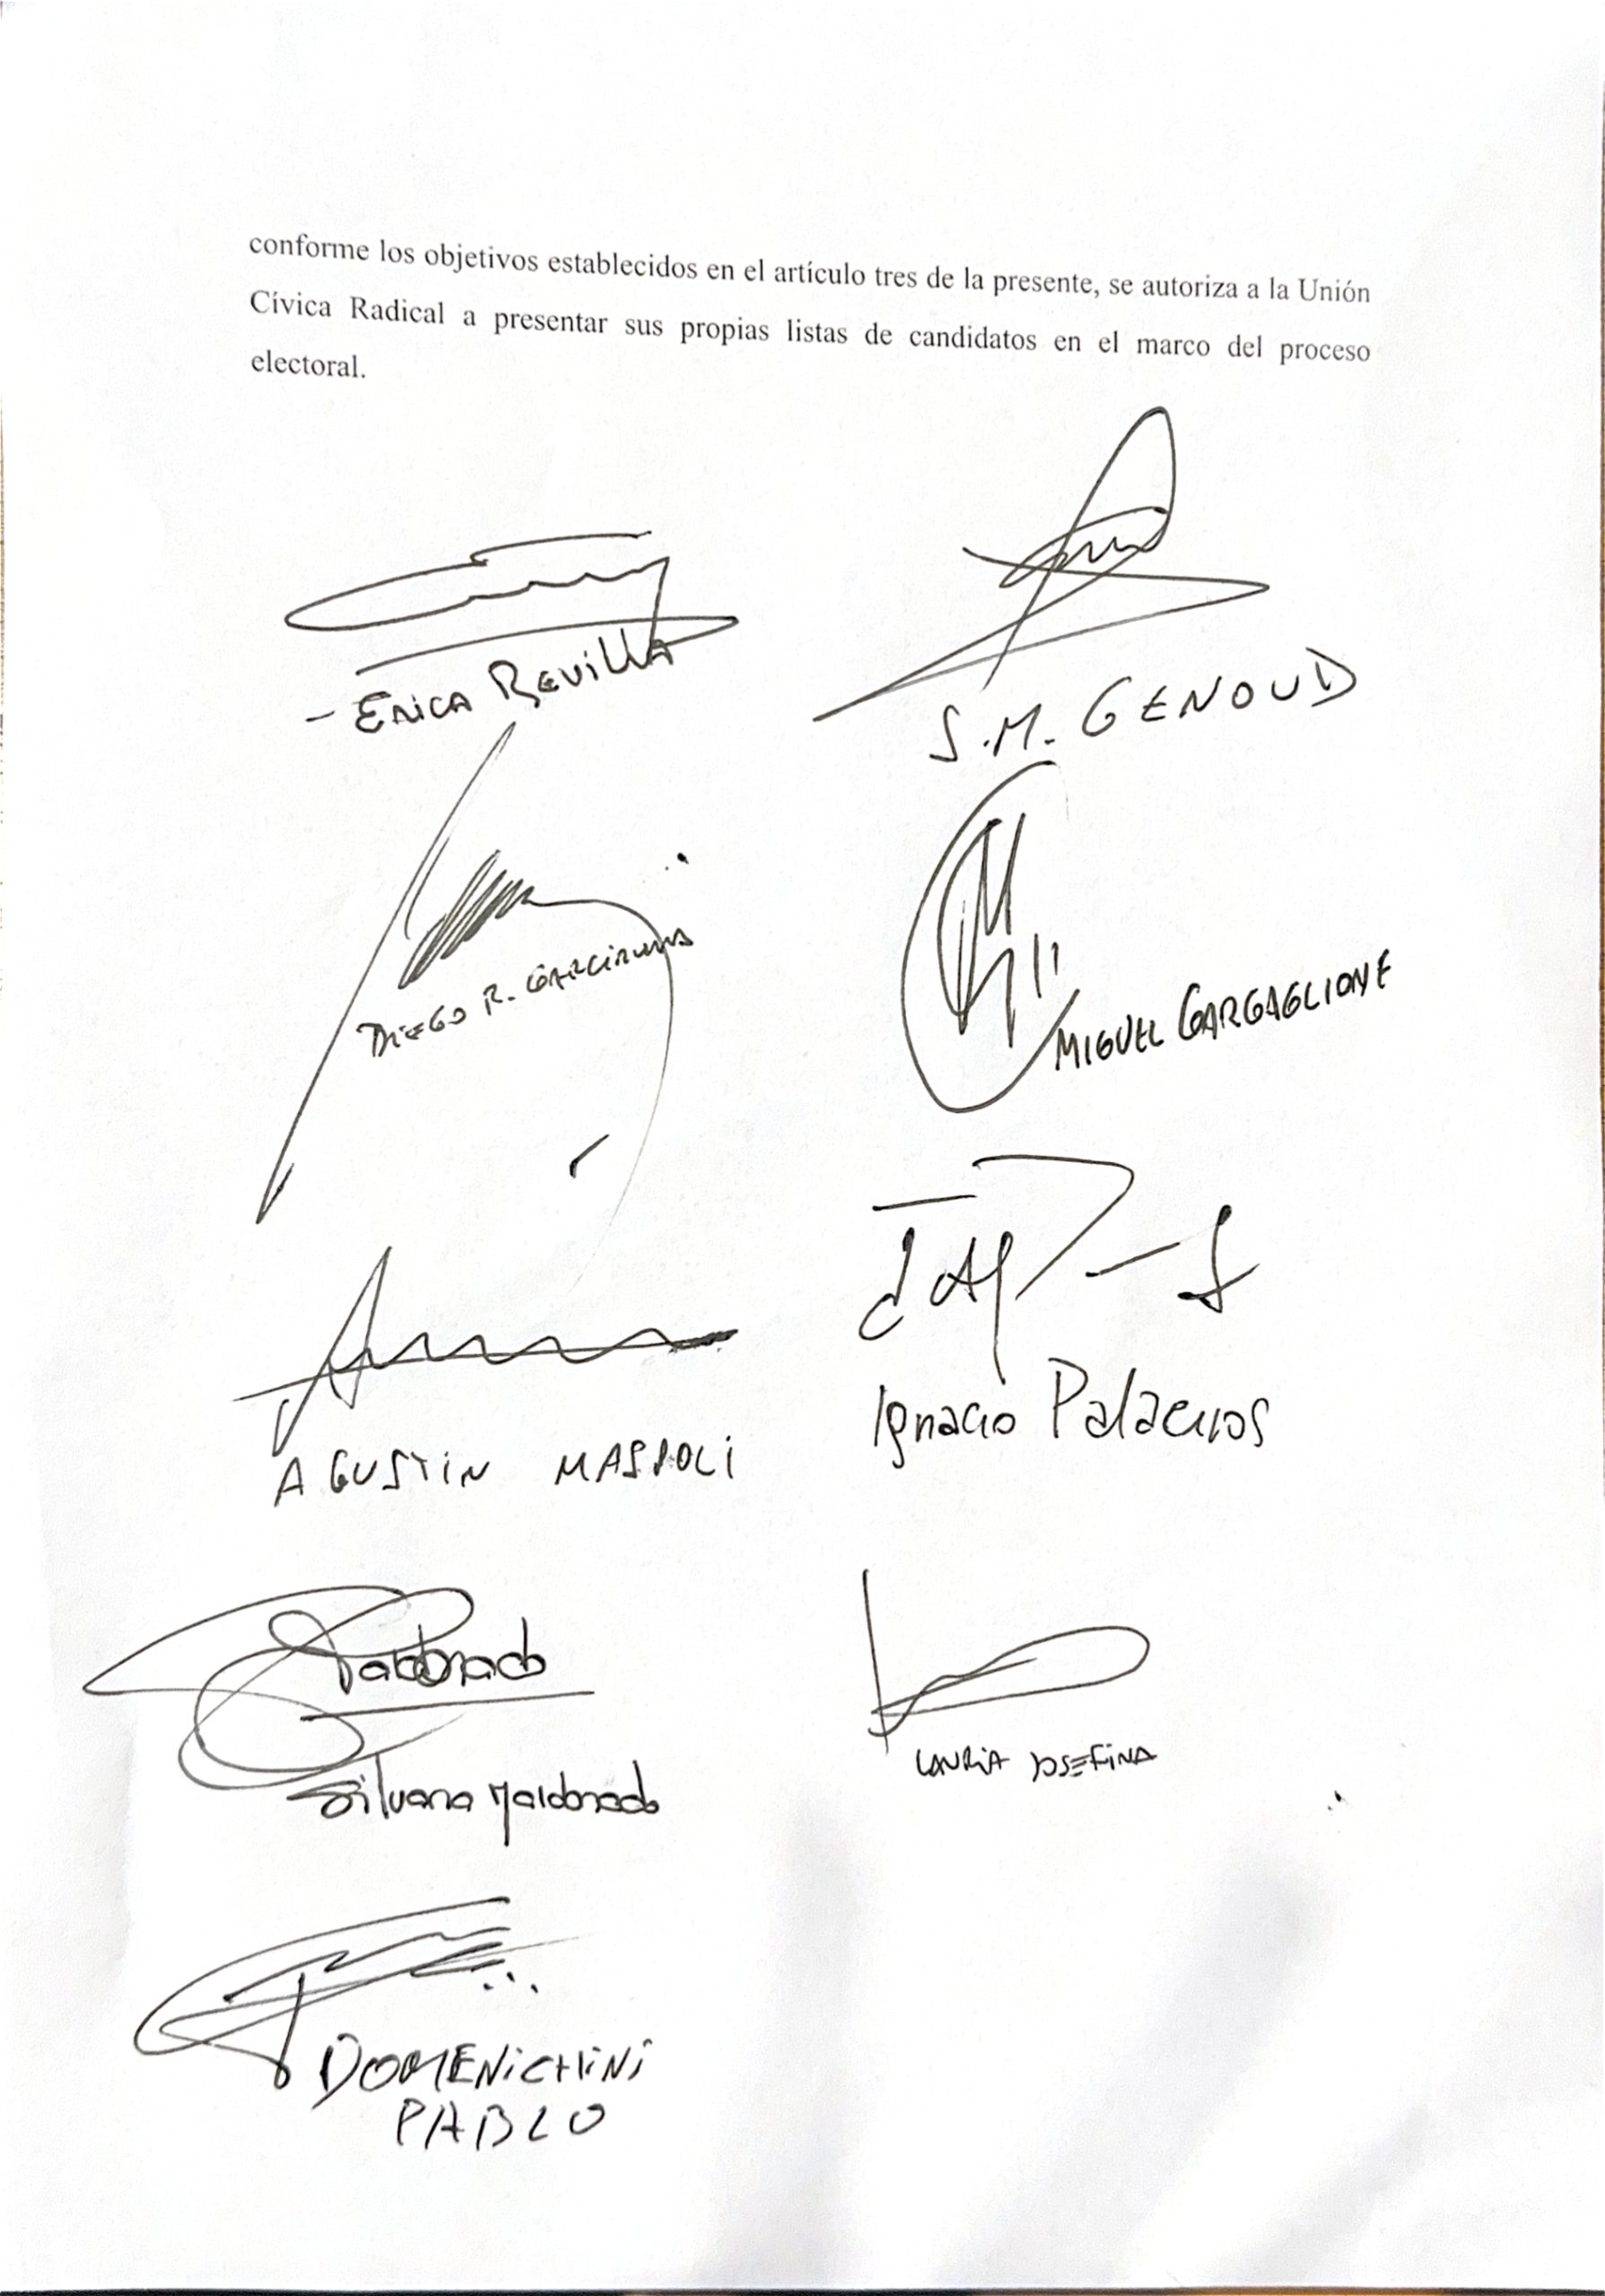 conforme los objetivos establecidos en el artículo tres de la presente, se autoriza a la Unión
Cívica Radical a presentar sus propias listas de candidatos en el marco del proceso
electoral.
- Erica Revilla
S.M. GENOUD
DIEGO R.
MIGUEL GARGAGLIONE
AGUSTIN MASPOLI
Ignacio Palacios
Maldonado
Silvana Maldonado
LAURIA JOSEFINA
DOMENICHINI
PABLO